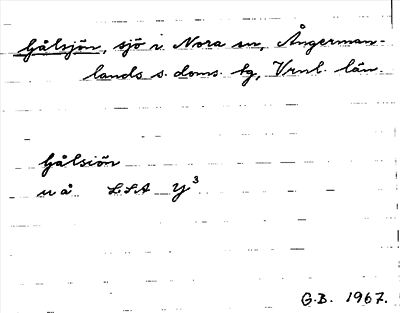 Gålsjön, sjö i Nora sn, Ångerman-
lands s. doms. tg, Vrnl. län.
Gålsiön
u å LSA Y³
G.B. 1967.